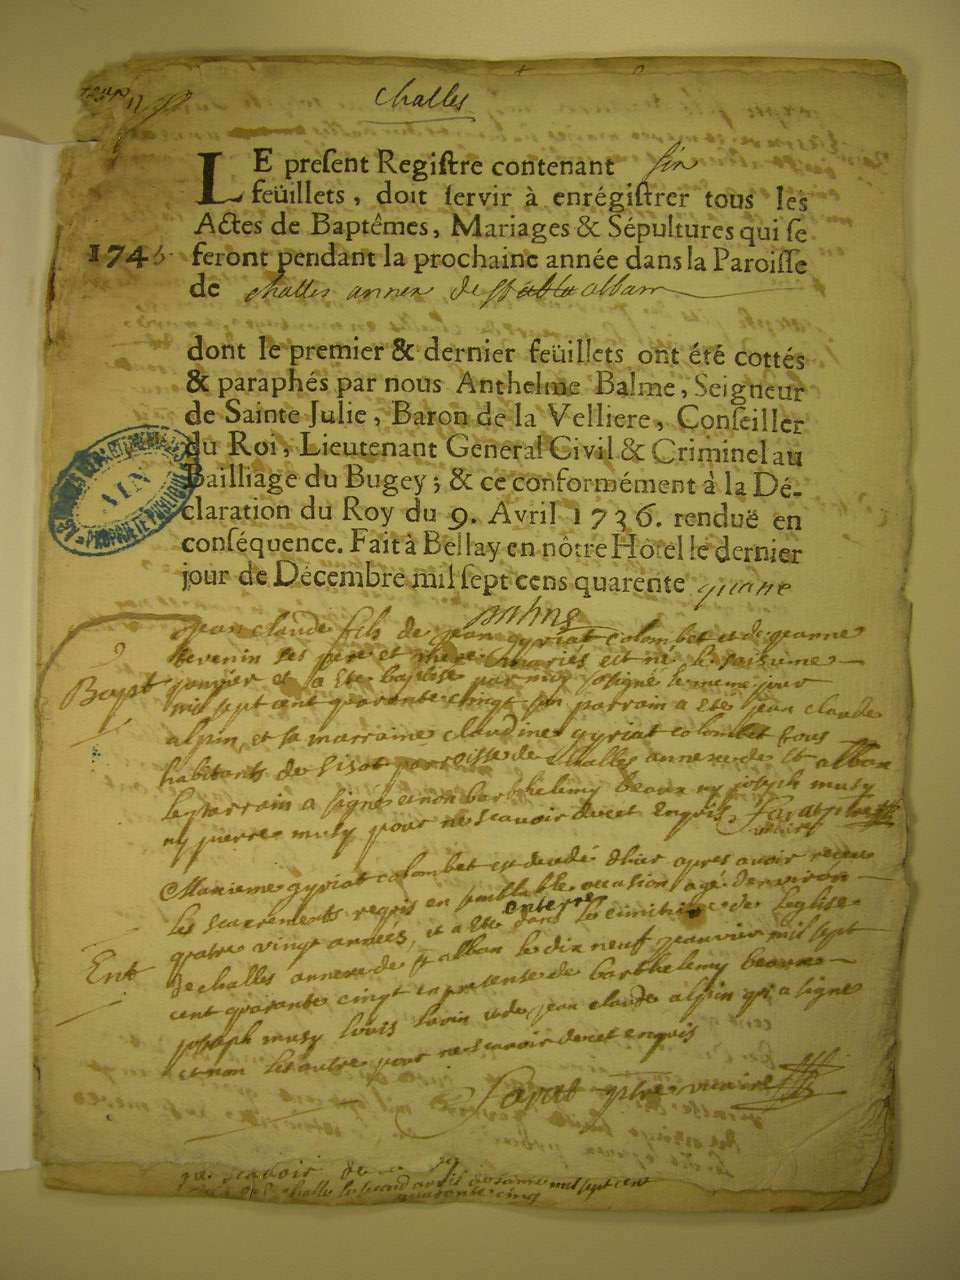 challes
LE preſent Regiſtre contenant six
feüillets, doit ſervir à enrégiſtrer tous les
Actes de Baptêmes, Mariages & Sépultures qui ſe
1745 feront pendant la prochaine année dans la Paroiſſe
de challes annex de St alban
dont le premier & dernier feüillets ont été cottés
& paraphés par nous Anthelme Balme, Seigneur
de Sainte Julie, Baron de la Velliere, Conſeiller
du Roi, Lieutenant General Civil & Criminel au
Bailliage du Bugey; & ce conformément à la Dé-
claration du Roy du 9. Avril 1736. renduë en
conſéquence. Fait à Bellay en nôtre Hôtel le dernier
jour de Décembre mil ſept cens quarente
AIN
PROPRIÉTÉ PUBLIQUE
jean claude fils de jean gyriat colombet et de jeanne
tevenin ses pere et mere mariés est né le
Bapt janvier et a ete baptisé par moy soŭsigné le meme jour
mil sept cent quarante cinq son parrain a ete jean claude
alpin et sa marraine claudine gyriat colombet tous
habitants de paroisse de challes annexe de St alban
le parrain a signé et non barthelemy beaux ny joseph musy
ny pierre musy pour ne scavoir de ce enquis
gyriat colombet est decedé d'hier apres avoir receu
les sacrements requis en semblable occasion agé d'environ
quatre vingt années, et a ete enterre dans le cimitiere de l'eglise
Ent de challes annexe de St alban le dix neuf jeanvier mil sept
cent quarante cinq en presence de barthelemy beaux
joseph musy louis et de jean claude alpin qui a signé
et non les autre pour ne scavoir de ce enquis
vicaire
scavoir de
challes le second avril mil sept cent
quarante cinq